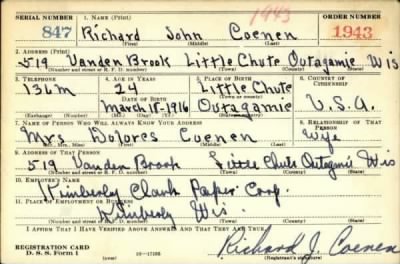 1943
SERIAL NUMBER 1. NAME (Print) ORDER NUMBER
847 Richard John Coenen 1943
(First) (Middle) (Last)
2. ADDRESS (Print)
519 Vanden Brook Little Chute Outagamie Wis
(Number and street or R. F. D. number) (Town) (County) (State)
3. TELEPHONE 4. AGE IN YEARS 5. PLACE OF BIRTH 6. COUNTRY OF CITIZENSHIP
136M 24 Little Chute
(Town)
DATE OF BIRTH
March 18-1916 Outagamie U.S.A.
(Exchange) (Number) (Mo.) (Day) (Yr.) (State or country)
7. NAME OF PERSON WHO WILL ALWAYS KNOW YOUR ADDRESS 8. RELATIONSHIP OF THAT PERSON
Mrs Dolores Coenen Wife
(Mr., Mrs., Miss) (First) (Middle) (Last)
9. ADDRESS OF THAT PERSON
519 Vanden Brook Little Chute Outagamie Wis
(Number and street or R. F. D. number) (Town) (County) (State)
10. EMPLOYER'S NAME
Kimberly Clark Paper Corp.
11. PLACE OF EMPLOYMENT OR BUSINESS
Kimberly Wis.
(Number and street or R. F. D. number) (Town) (County) (State)
I AFFIRM THAT I HAVE VERIFIED ABOVE ANSWERS AND THAT THEY ARE TRUE.
REGISTRATION CARD
D. S. S. Form 1 16-17105 Richard J. Coenen
(Registrant's signature)